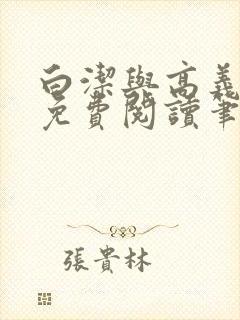 白潔與高義
免費閱讀筆
張貴林